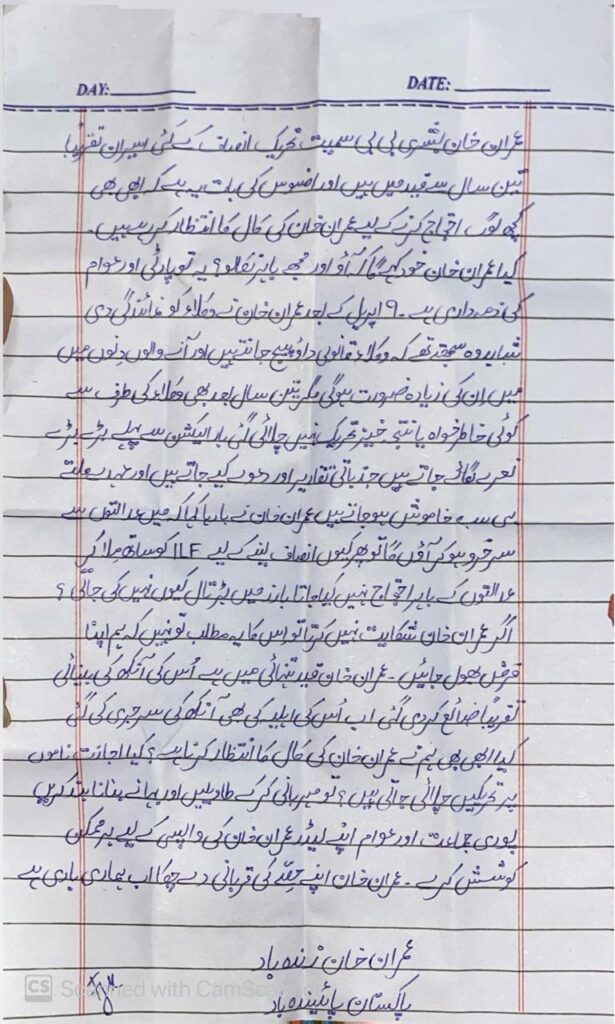 DAY: DATE:
عمران خان بشریٰ بی بی سمیت تحریک انصاف کے کئی اسیران تقریباً
تین سال سے قید میں ہیں اور افسوس کی بات یہ ہے کہ ابھی بھی
کچھ لوگ احتجاج کرنے کے لیے عمران خان کی کال کا انتظار کر رہے ہیں۔
کیا عمران خان خود کہے گا کہ آؤ اور مجھے باہر نکالو؟ یہ تو پارٹی اور عوام
کی ذمہ داری ہے ۔ 9 اپریل کے بعد عمران خان نے وکلاء کو نمائندگی دی
شاید وہ سمجھتے تھے کہ وکلاء قانونی داؤ پیچ جانتے ہیں اور آنے والوں دنوں میں
میں ان کی زیادہ ضرورت ہوگی مگر تین سال بعد بھی وکلاء کی طرف سے
کوئی خاطر خواہ یا نتیجہ خیز تحریک نہیں چلائی گئی بار الیکشن سے پہلے بڑے بڑے
نعرے لگائے جاتے ہیں جذباتی تقاریر اور دعوے کیے جاتے ہیں اور عہدے ملتے
ہی سب خاموش ہو جاتے ہیں عمران خان نے بارہا کہا کہ میں عدالتوں سے
سرخرو ہو کر آؤں گا تو پھر کیوں انصاف لینے کے لیے ILF کو ساتھ ملا کر
عدالتوں کے باہر احتجاج نہیں کیا جاتا بارز میں ہڑتال کیوں نہیں کی جاتی ؟
اگر عمران خان شکایت نہیں کرتا تو اس کا یہ مطلب تو نہیں کہ ہم اپنا
فرض بھول جائیں ۔ عمران خان قید تنہائی میں ہے اُس کی آنکھ کی بینائی
تقریباً ضائع کر دی گئی اب اُس کی اہلیہ کی بھی آنکھ کی سرجری کی گئی
کیا ابھی بھی ہم نے عمران خان کی کال کا انتظار کرنا ہے ؟ کیا اجازت ناموں
پر تحریکیں چلائی جاتی ہیں ؟ تو مہربانی کر کے تاویلیں اور بہانے بنانا بند کریں
پوری جماعت اور عوام اپنے لیڈر عمران خان کی واپسی کے لیے ہر ممکن
کوشش کرے ۔ عمران خان اپنے حصّے کی قربانی دے چکا اب ہماری باری ہے
عمران خان زندہ باد
پاکستان پائیندہ باد
CS Scanned with CamSca